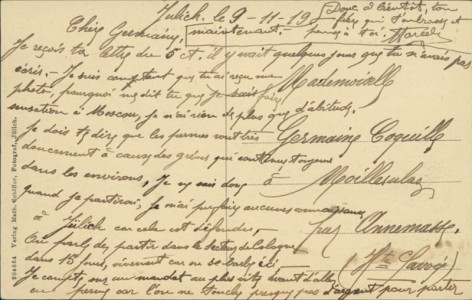 Jülich. le 9-11-19
Donc à bientôt, ton
frère qui t'embrasse et
pense à toi. Marcel
Chère Germaine, maintenant.
Je reçois ta lettre du 5 ct. il y avait quelques jours que tu n'avais pas
écris. Je suis content que tu as reçu ma
photo, pourquoi me dit tu que je fais
sensation à Moscou, je n'ai rien de plus que d'habitude.
Je dois te dire que les permes vont très
doucement à cause des grèves qui continuent toujours
dans les environs, Je ne sais donc
quand je partirai, je n'ai
à Jülich car cela est défendu,
On parle de partir dans le secteur de Cologne
dans 15 jours,
Je compte sur un mandat au plus vite avant d'aller
en perme car l'on ne touche presque pas d'argent pour partir
Mademoiselle
Germaine Coquille
à Moillesulaz
par Annemasse
Hte Savoie
Verlag Math. Photograf, Jülich.